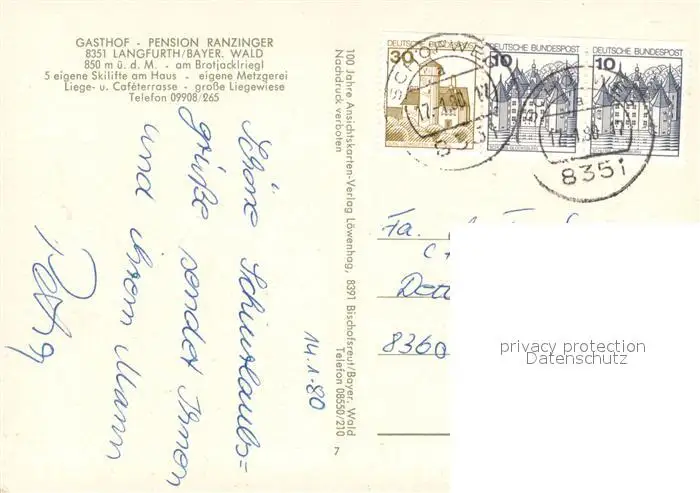 GASTHOF - PENSION RANZINGER
8351 LANGFURTH/BAYER. WALD
850 m ü. d. M. - am Brotjacklriegl
5 eigene Skilifte am Haus - eigene Metzgerei
Liege- u. Caféterrasse - große Liegewiese
Telefon 09908/265
Schöne Schiurlaubs=
grüße sendet Ihnen
und Ihrem Mann
14.1.80
100 Jahre Ansichtskarten-Verlag Löwenhag, 8391 Bischofsreut/Bayer. Wald
Nachdruck verboten
Telefon 08550/210
7
30 DEUTSCHE BUNDESPOST
10 DEUTSCHE BUNDESPOST
10 DEUTSCHE BUNDESPOST
8351
Fa.
8360
privacy protection
Datenschutz